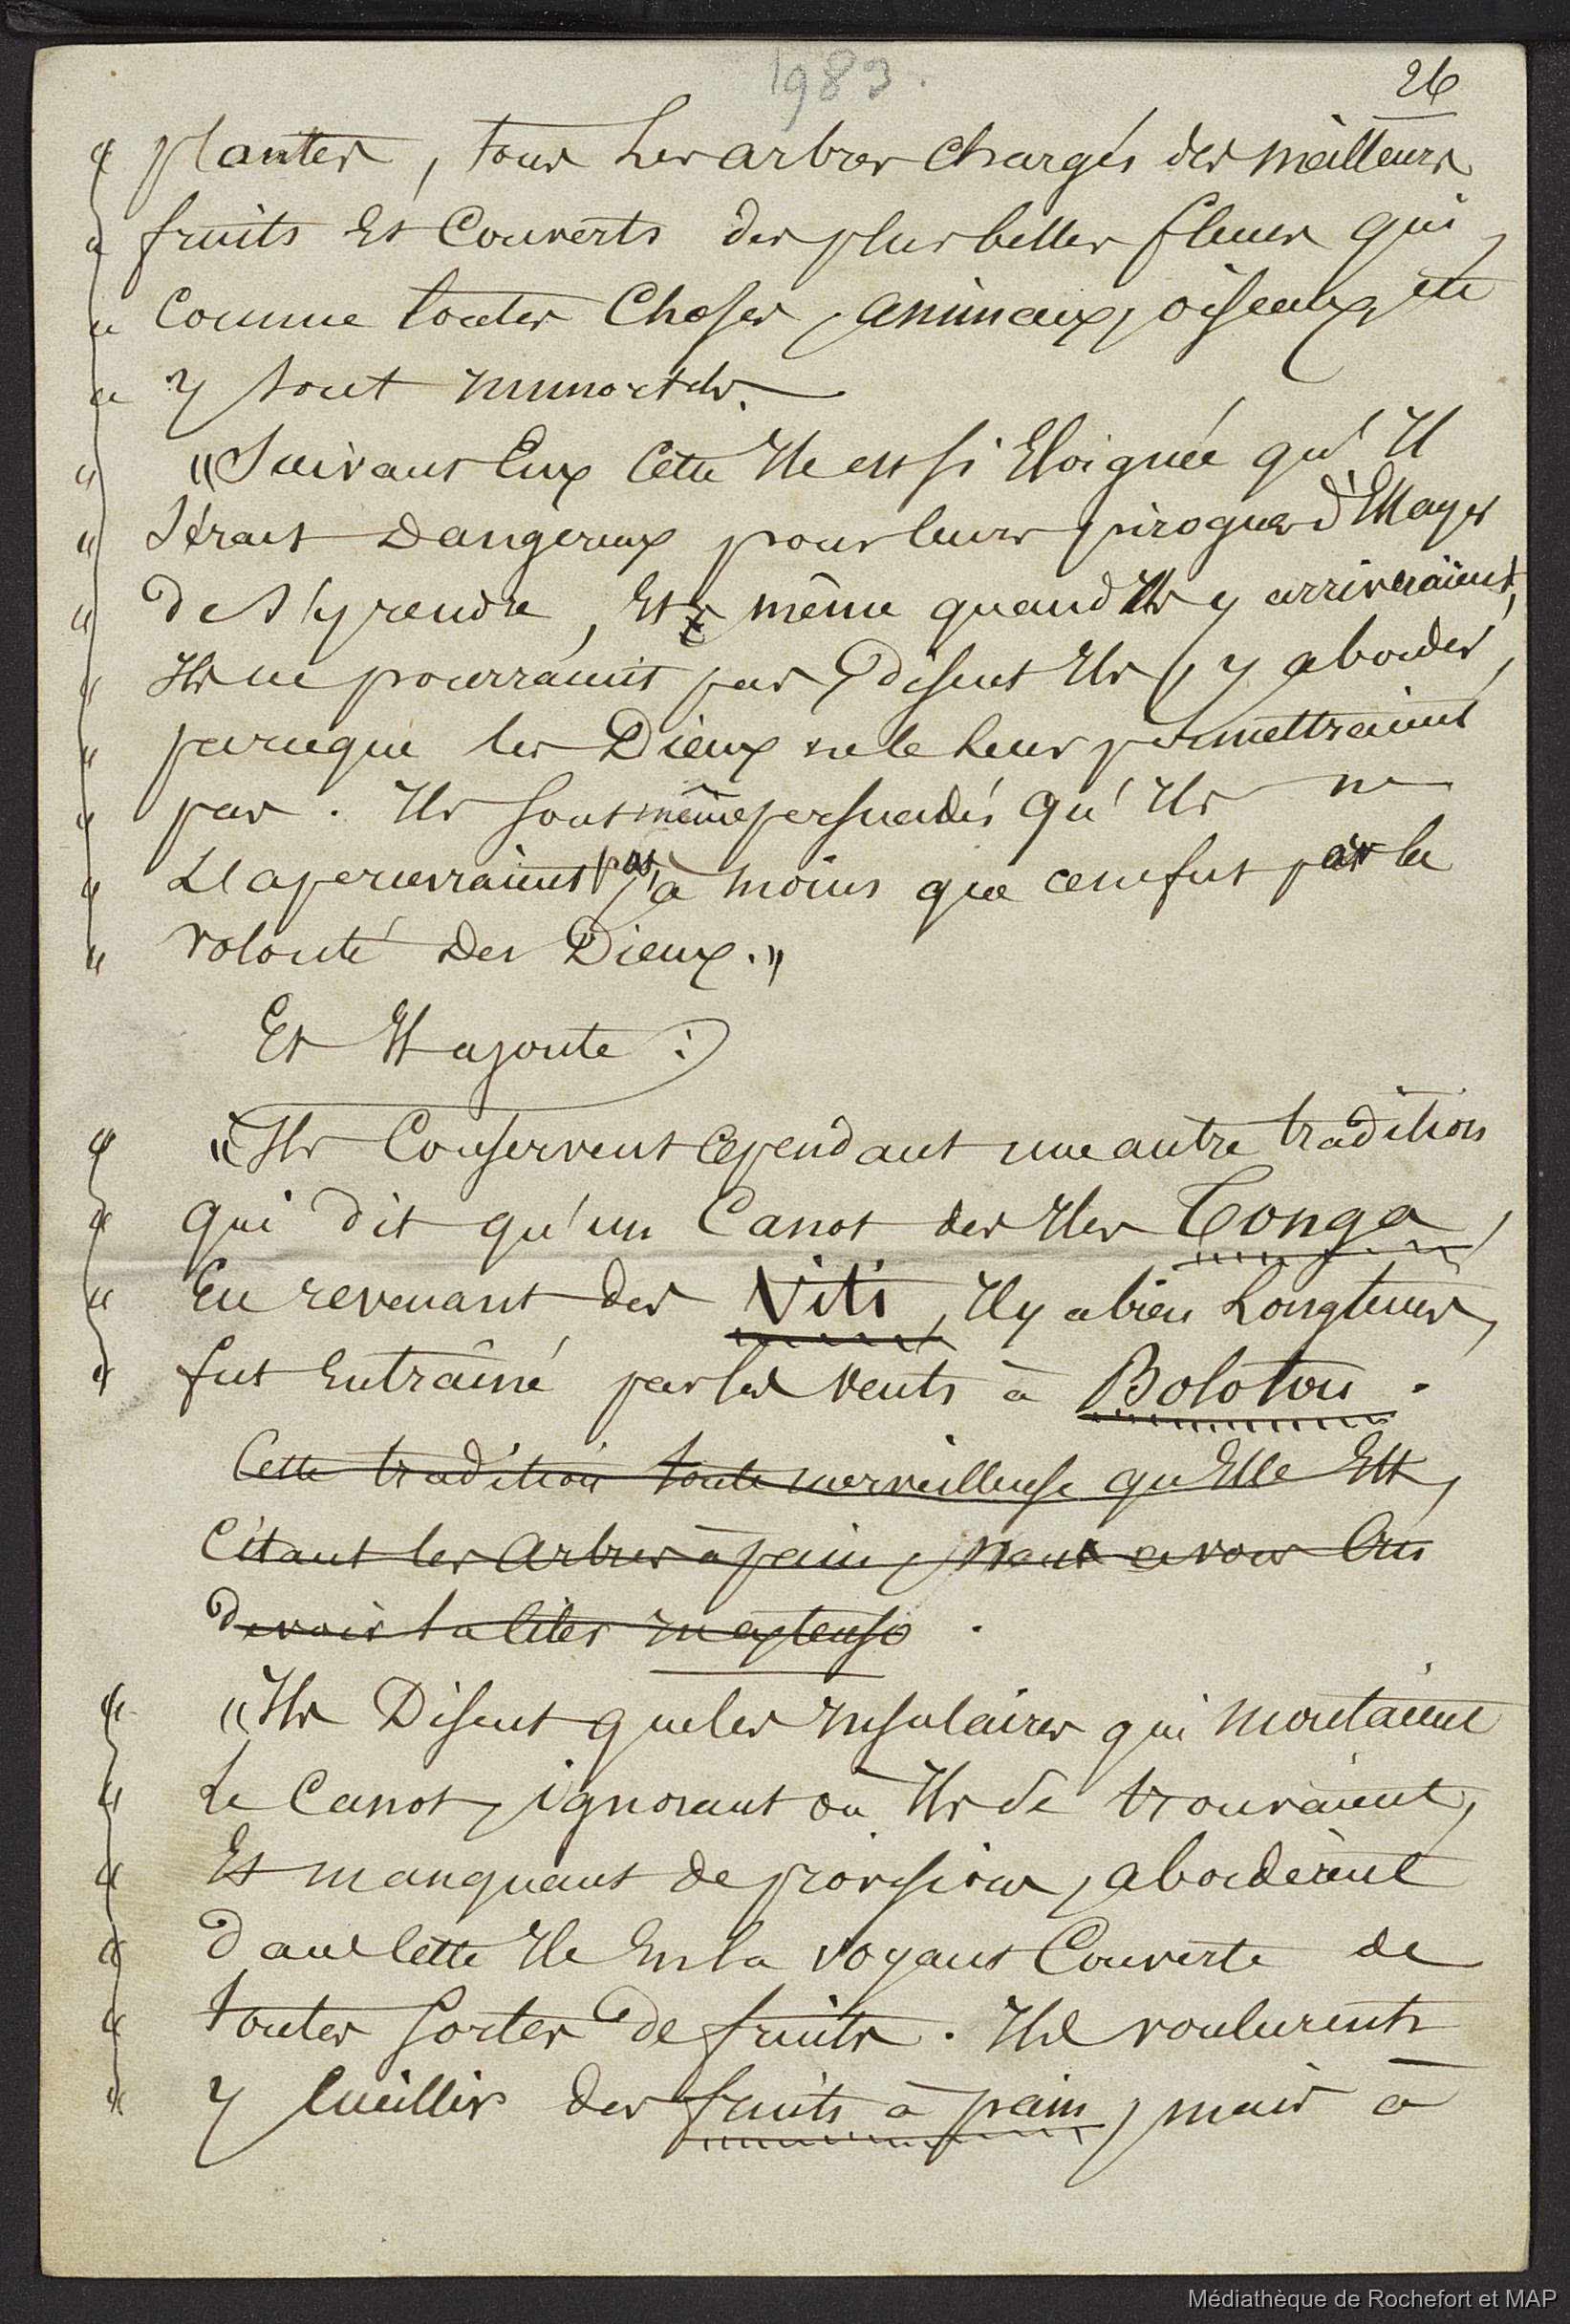 1983.
26
" plantes, tous les arbres chargés des meilleurs
" fruits et couverts des plus belles fleurs qui,
" comme toutes choses, animaux, oiseaux, etc
" y sont immortels.
" "Suivant Eux cette Ile est si Eloignée qu'Il
" sérait dangereux pour leurs pirogues d'Essayer
" de s'y rendre, Et même quand Ils y arriveraient,
" Ils ne pourraient pas, disent Ils, y aborder,
" parceque les Dieux ne le leur permettraient
" pas. Ils sont même persuadés qu'Ils ne
" L'apercevraient pas, à moins que ce ne fut par la
" volonté des Dieux."
Et Il ajoute :
" "Ils Conservent cependant une autre tradition
" qui dit qu'un Canot des Iles Tonga,
" En revenant des Viti, Il y a bien Longtems,
" fut Entraîné par les vents à Bolotou.
Cette tradition toute merveilleuse qu'Elle Est,
Citant les arbres à pain, nous avons Cru
devoir la Citer in extenso.
" "Ils Disent que les Insulaires qui montaient
" Le Canot, ignorant où Ils se trouvaient,
" Et manquant de provisions, abordèrent
" dans Cette Ile En la voyant Couverte de
" toutes sortes de fruits. Ils voulurent
" y Cueillir des fruits à pain, mais à
Médiathèque de Rochefort et MAP